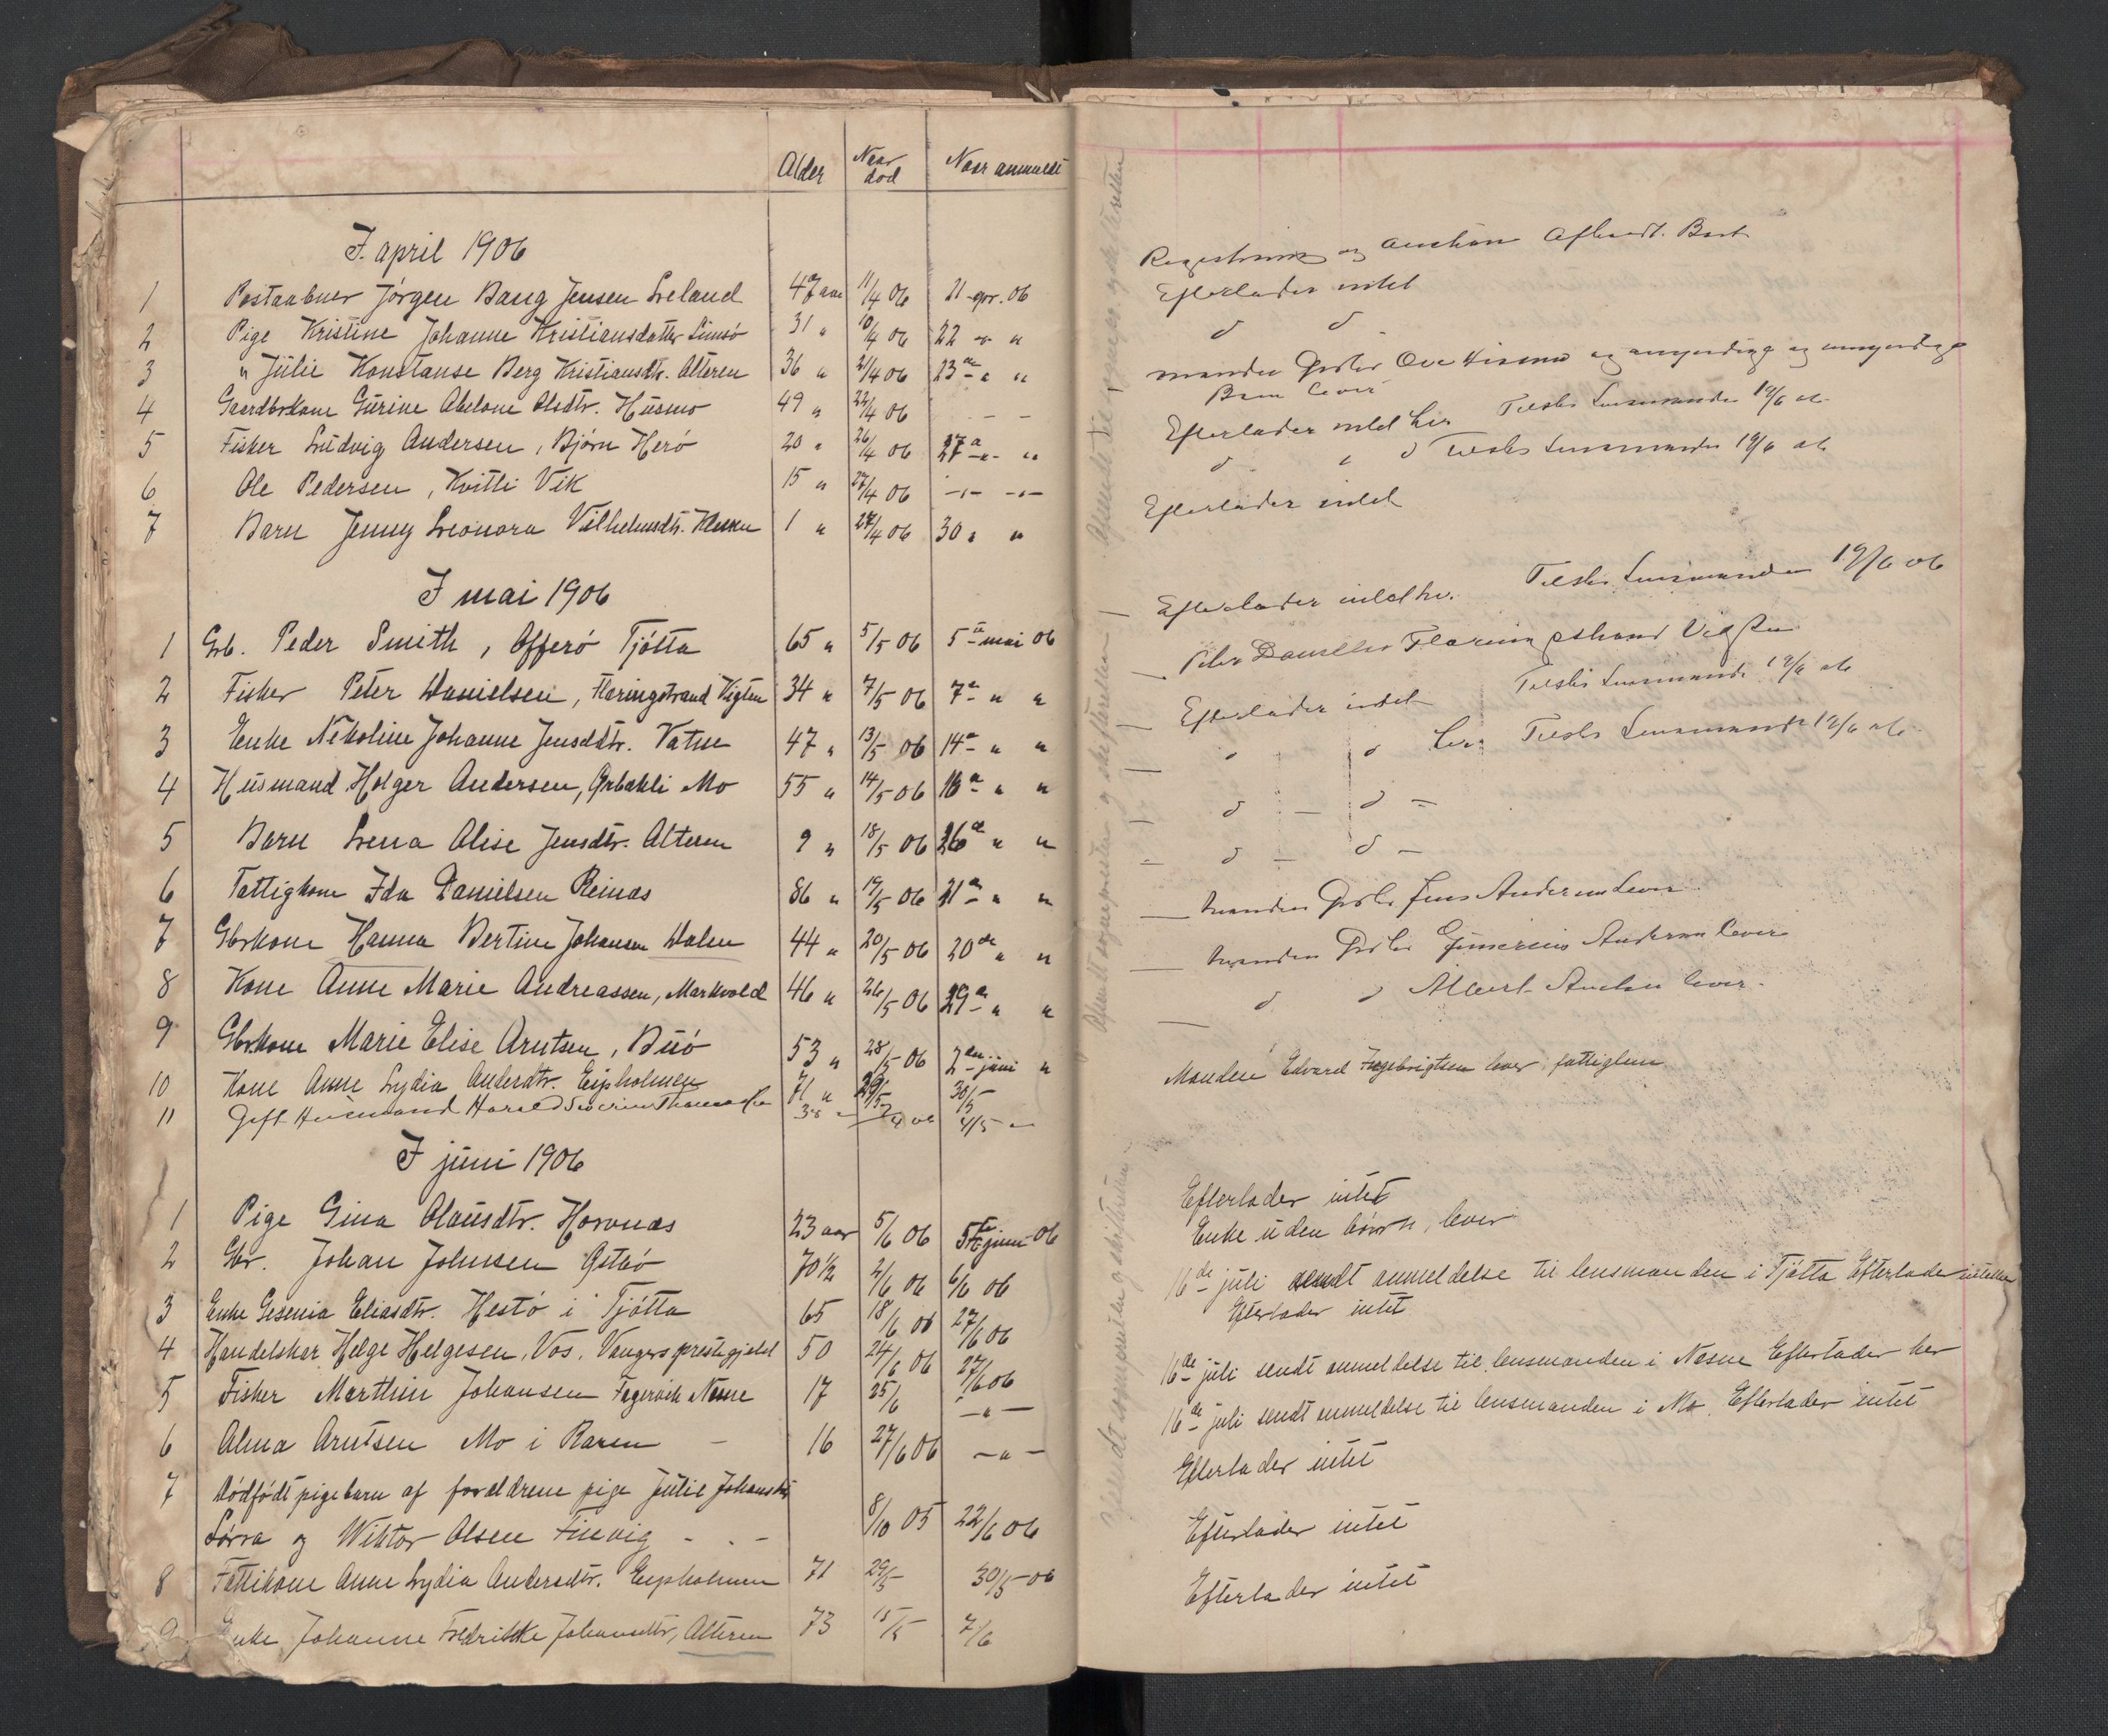 Alder Naar død Naar anmeldt
I april 1906
1 Postaabner Jørgen Bang Jensen Leland 47 aar 11/4 06 21 apr. 06
2 Pige Kristine Johanne Kristiansdatter 31 " 10/4 06 22 "
3 " Julie Konstanse Berg Kristiansdtr. Alteren 36 " 21/4 06 23 " "
4 Gaardbrkone Gurine Abelone Olsdtr. Husmo 49 " 22/4 06 - -
5 Fisker Ludvig Andersen, Bjørn Herø 20 " 26/4 06 27 " "
6 Ole Pedersen, Kvitli Vik 15 " 27/4 06 -"- -"-
7 Barn Jenny Leonora Vilhelmsdtr. 1 " 27/4 06 30 " "
I mai 1906
1 Grb. Peder Smith, Offerø Tjøtta 65 " 5/5 06 5te mai 06
2 Fisker Peter Danielsen, Flaringstrand Vigten 34 " 7/5 06 7 " "
3 Enke Nikoline Johanne Jensdtr. Vatne 47 " 13/5 06 14 " "
4 Husmand Holger Andersen, Ørbækli Mo 55 " 14/5 06 16 " "
5 Barn Lena Alise Jensdtr. Alteren 9 " 18/5 06 26 " "
6 Fattigkone Ida Danielsen Reinas 86 " 19/5 06 21 " "
7 Gbrkone Hanna Bertine Johansen Dalen 44 " 20/5 06 20de " "
8 Kone Anne Marie Andreassen, Markvold 46 " 26/5 06 29 " "
9 Gbrkone Marie Elise Arntsen, Buø 53 " 28/5 06 2den juni "
10 Kone Anne Lydia Andersdtr. Eipholmen 71 " 29/5 30/5
11 Gift Husmand Harald Severin 38 4/5
I juni 1906
1 Pige Gina Olausdtr. Horvnæs 23 aar 5/6 06 5te juni 06
2 Gbr. Johan Johnsen Østbø 70 1/2 2/6 06 6/6 06
3 Enke Gesenia Eliasdtr. Hestø i Tjøtta 65 18/6 06 27/6 06
4 Handelskar Helge Helgesen, Vos, Vangers prestegjeld 50 24/6 06 27/6 06
5 Fisker Marthin Johansen Fagervik Nesne 17 25/6 -"-
6 Alma Arntsen Mo i Ranen - 16 27/6 06 -"-
7 Dødfødt pigebarn af forældrene pige Julie Johansdtr
Sørra og Wiktor Olsen Finvig - - - 8/10 05 22/6 06
8 Fattikone Anne Lydia Andersdtr. Eipholmen 71 29/5 30/5 06
9 Enke Johanne Fredrikke Johansdtr, Alteren 73 15/5 7/6
Registrering og auktion Afholdt. Bort
Efterlader intet
d d
manden Gbr Ove Husmo og myndige og umyndige
Børn lever
Efterlader intet her Tilskr Lensmanden 19/6 06
d " d Tilskr Lensmanden 19/6 06
Efterlader intet
Efterlader intet her. Tilskr Lensmanden 19/6 06
Peter Danielsen Flaringstrand Vigten
Efterlader intet Tilskr Lensmanden 19/6 06
" d her Tilskr Lensmanden 19/6 06
d - d -
d - d -
manden Gbr Jens Andersen lever
manden Gbr Andersen lever
d d Albert lever.
Manden Edvard Ingebrigtsen lever, fattiglem
Efterlader intet
Enke uden børn, lever
16de juli sendt anmeldelse til lensmanden i Tjøtta Efterlader
Efterlader intet
16de juli sendt anmeldelse til lensmanden i Nesne Efterlader her
16de juli sendt anmeldelse til lensmanden i Mo. Efterlader intet
Efterlader intet
Efterlader intet
Efterlader intet